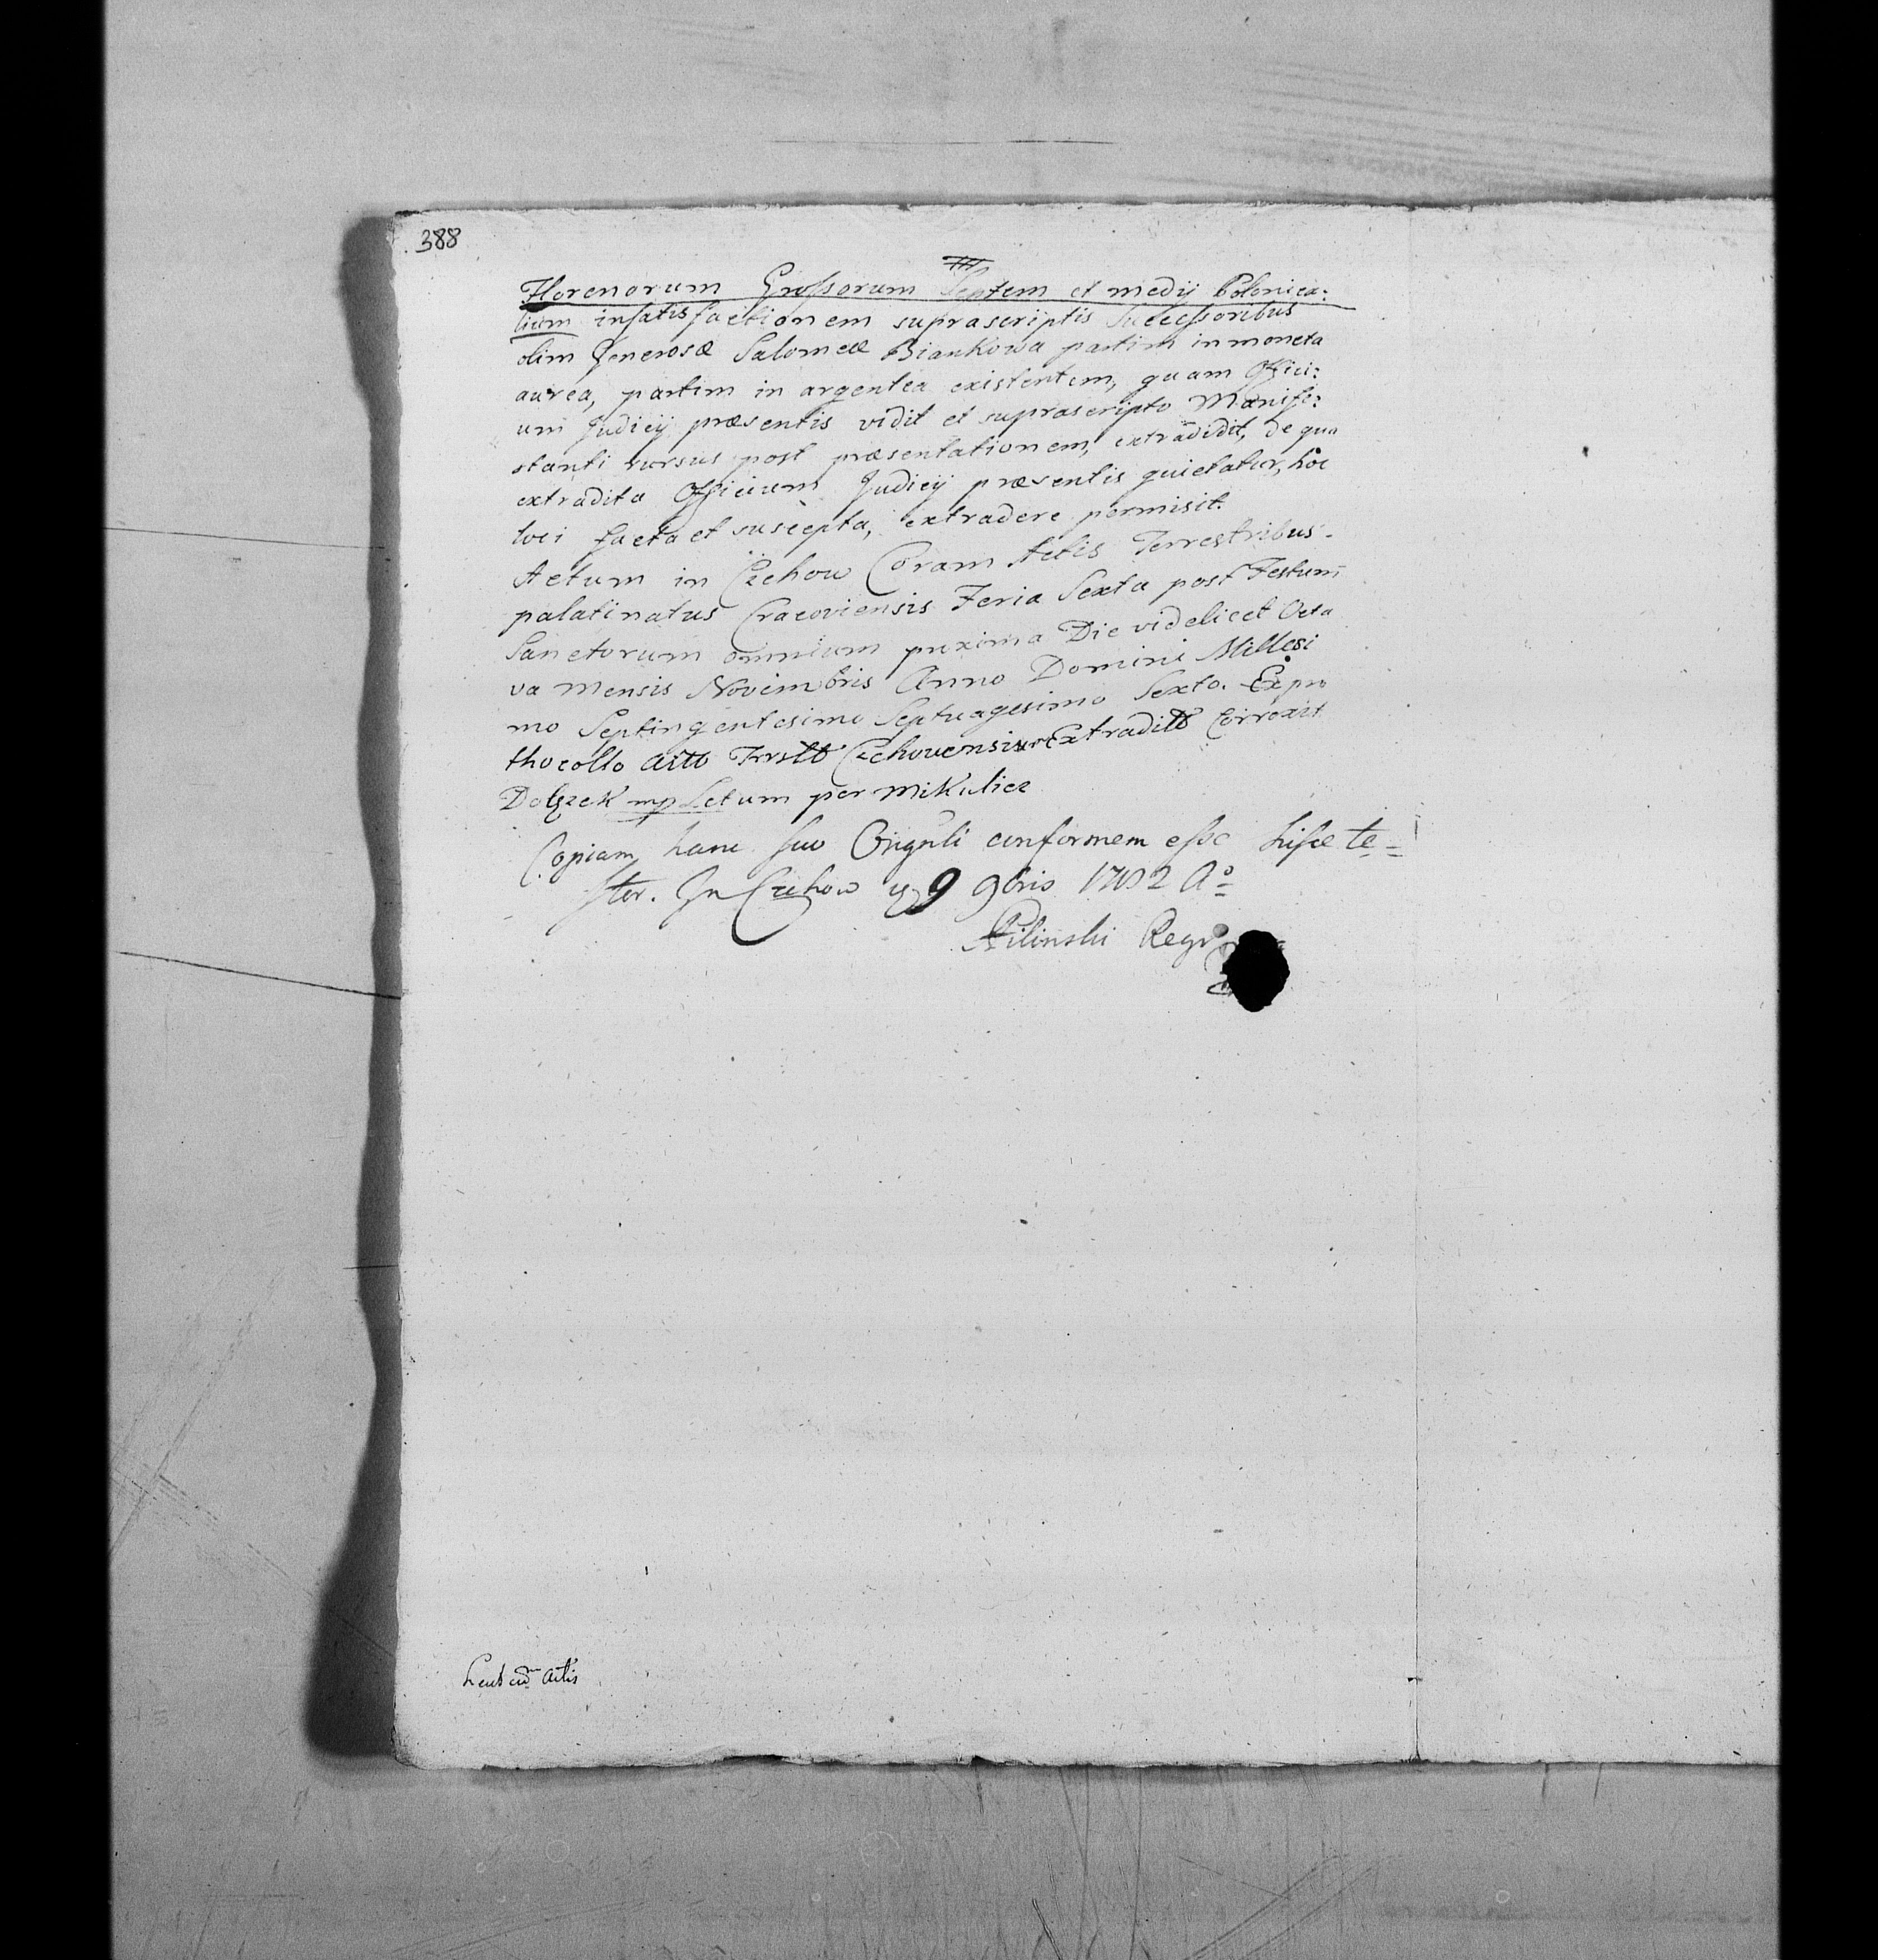 388
Florenorum Grossorum Septem et medij Polonica:
lium insatisfactionem suprascriptis Successoribus
olim Generosæ Salomeæ Biankowa partim in moneta
aurea, partim in argentea existentem, quam Offici:
um Judicij præsentis vidit et suprascripto Manife:
stanti rursus post præsentationem, extradidit, de qua
extradita Officium Judicij præsentis quietatur, hoc
loci facta et suscepta, extradere permisit.
Actum in Czchow Coram Actis Terrestribus
palatinatus Cracoviensis Feria Sexta post Festum
Sanctorum omnium proxima Die videlicet Octa
va Mensis Novembris Anno Domini Millesi
mo Septingentesimo Septuagesimo Sexto. Ex pro
thocollo Actt Trrstt Czchoviensium Extraditt Correxit
Dolęzek mp Lectum per Mikulicz
Copiam hanc suo Originli conformem esse hisce te=
stor. In Czchow 9 9bris 1782 Ao
Pilinski Regr